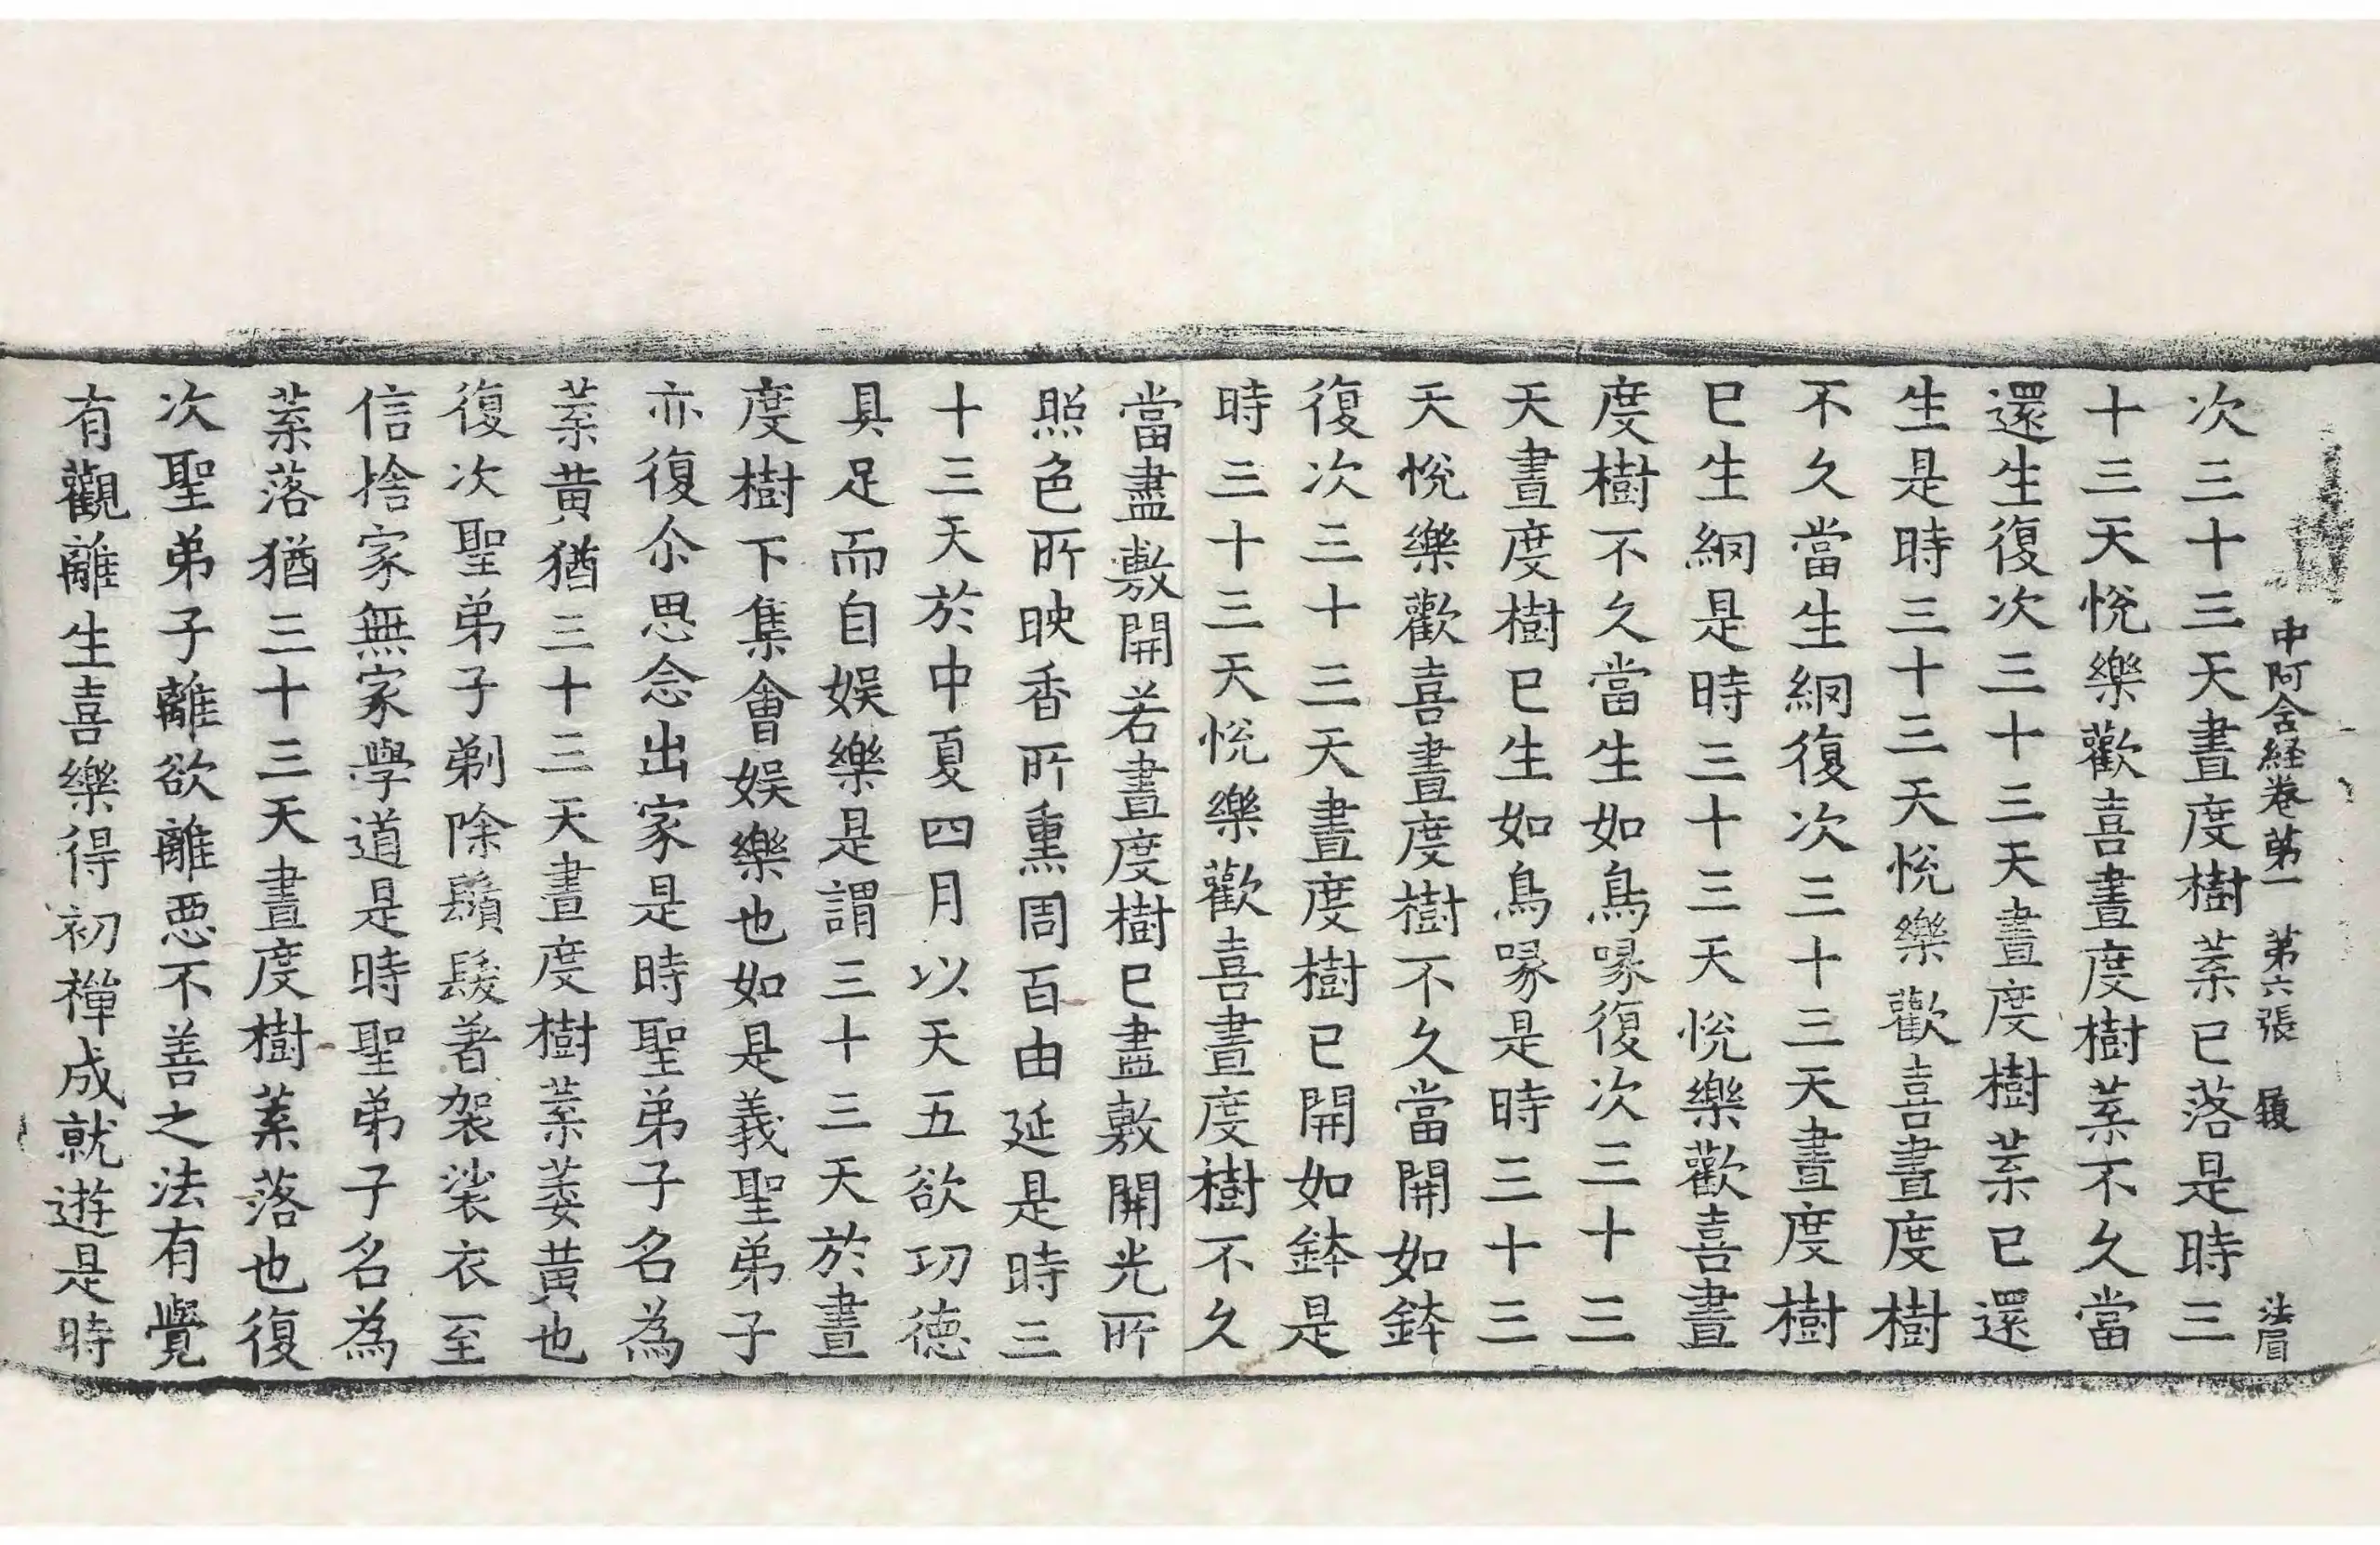 中阿含経巻第一 第六張 履 法眉
次三十三天晝度樹葉已落是時三
十三天悅樂歡喜晝度樹葉不久當
還生復次三十三天晝度樹葉已還
生是時三十三天悅樂歡喜晝度樹
不久當生網復次三十三天晝度樹
已生網是時三十三天悅樂歡喜晝
度樹不久當生如鳥喙復次三十三
天晝度樹已生如鳥喙是時三十三
天悅樂歡喜晝度樹不久當開如鉢
復次三十三天晝度樹已開如鉢是
時三十三天悅樂歡喜晝度樹不久
當盡敷開若晝度樹已盡敷開光所
照色所映香所熏周百由延是時三
十三天於中夏四月以天五欲功德
具足而自娛樂是謂三十三天於晝
度樹下集會娛樂也如是義聖弟子
亦復尒思念出家是時聖弟子名為
葉黃猶三十三天晝度樹葉萎黃也
復次聖弟子剃除鬚髮著袈裟衣至
信捨家無家學道是時聖弟子名為
葉落猶三十三天晝度樹葉落也復
次聖弟子離欲離惡不善之法有覺
有觀離生喜樂得初禪成就遊是時